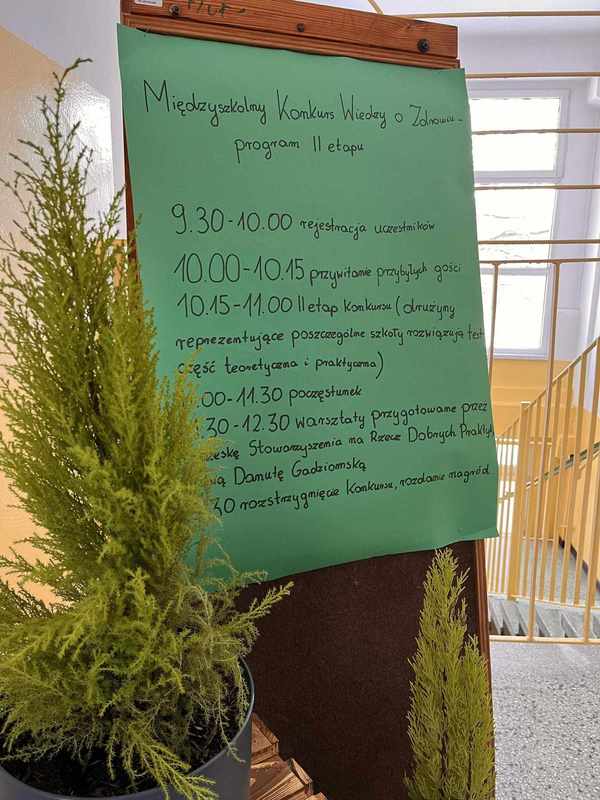 Międzyszkolny Konkurs Wiedzy o Zdrowiu -
program II etapu
9.30-10.00 rejestracja uczestników
10.00-10.15 przywitanie przybyłych gości
10.15-11.00 II etap konkursu (drużyny
reprezentujące poszczególne szkoły rozwiązują test
część teoretyczna i praktyczna)
.00-11.30 poczęstunek
.30-12.30 warsztaty przygotowane przez
Stowarzyszenia na Rzecz Dobrych Praktyk
Danutę Gadziomską
rozstrzygnięcie konkursu, rozdanie nagród